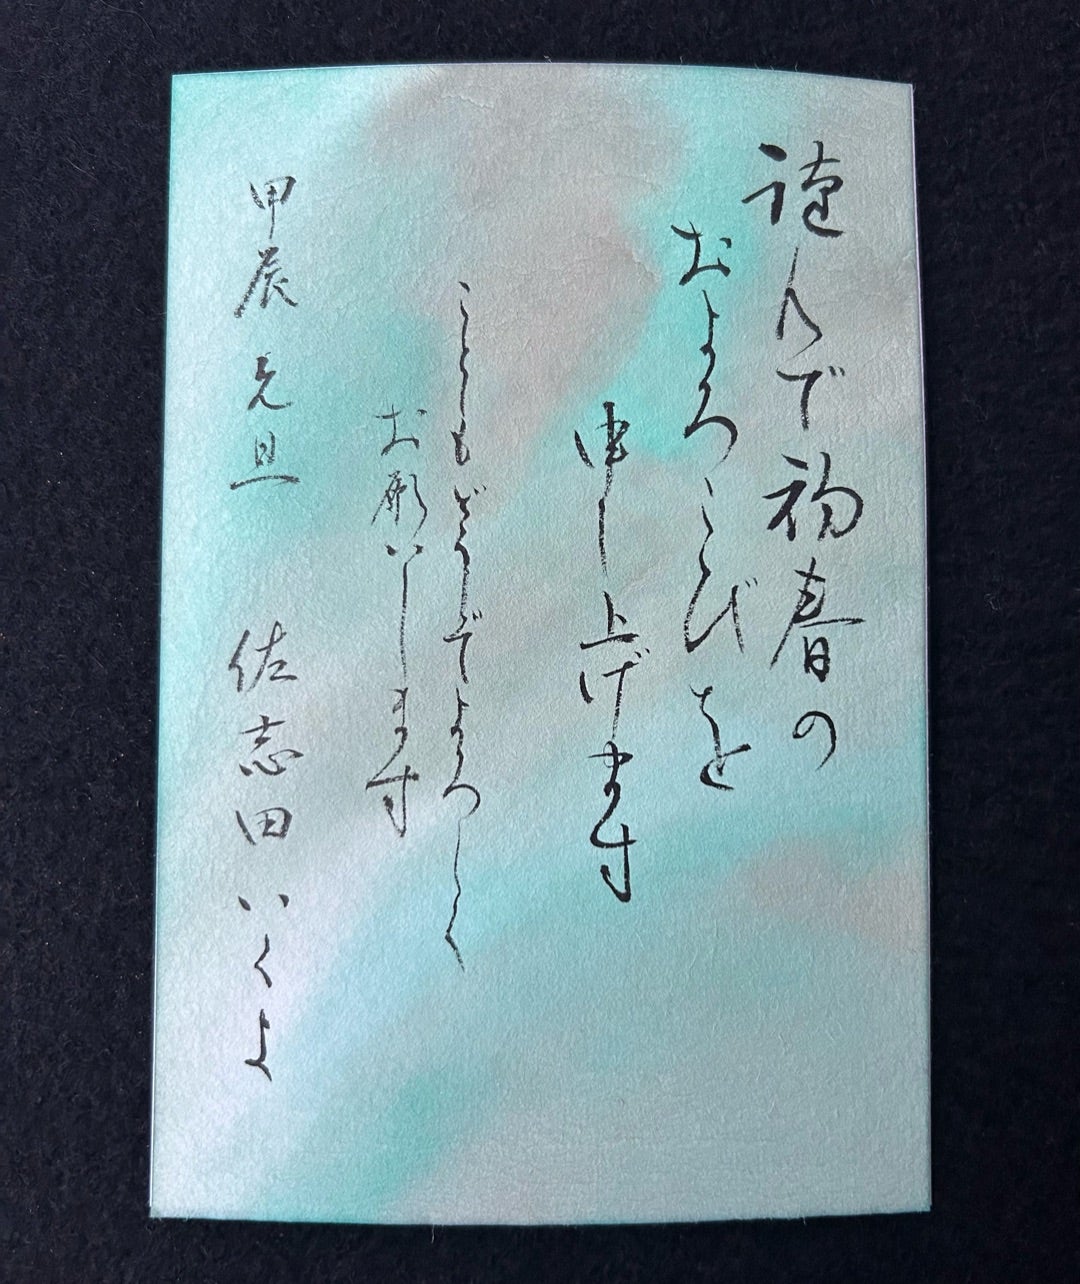 謹んで初春の
およろこびを
申し上げます
ことしもどうぞよろしく
お願いします
甲辰 元旦 佐志田いくよ